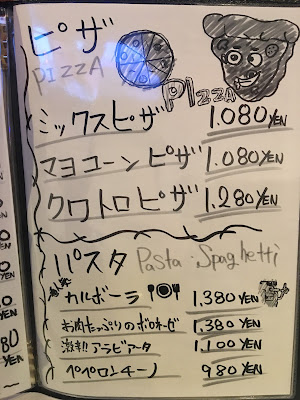 ピザ
PIZZA
PIZZA
ミックスピザ 1.080YEN
マヨコーンピザ 1.080YEN
クワトロピザ 1.280YEN
パスタ Pasta・Spaghetti
カルボーラ 1,380YEN
お肉たっぷりのボロネーゼ 1,380YEN
激辛!! アラビアータ 1,100YEN
ペペロンチーノ 980YEN